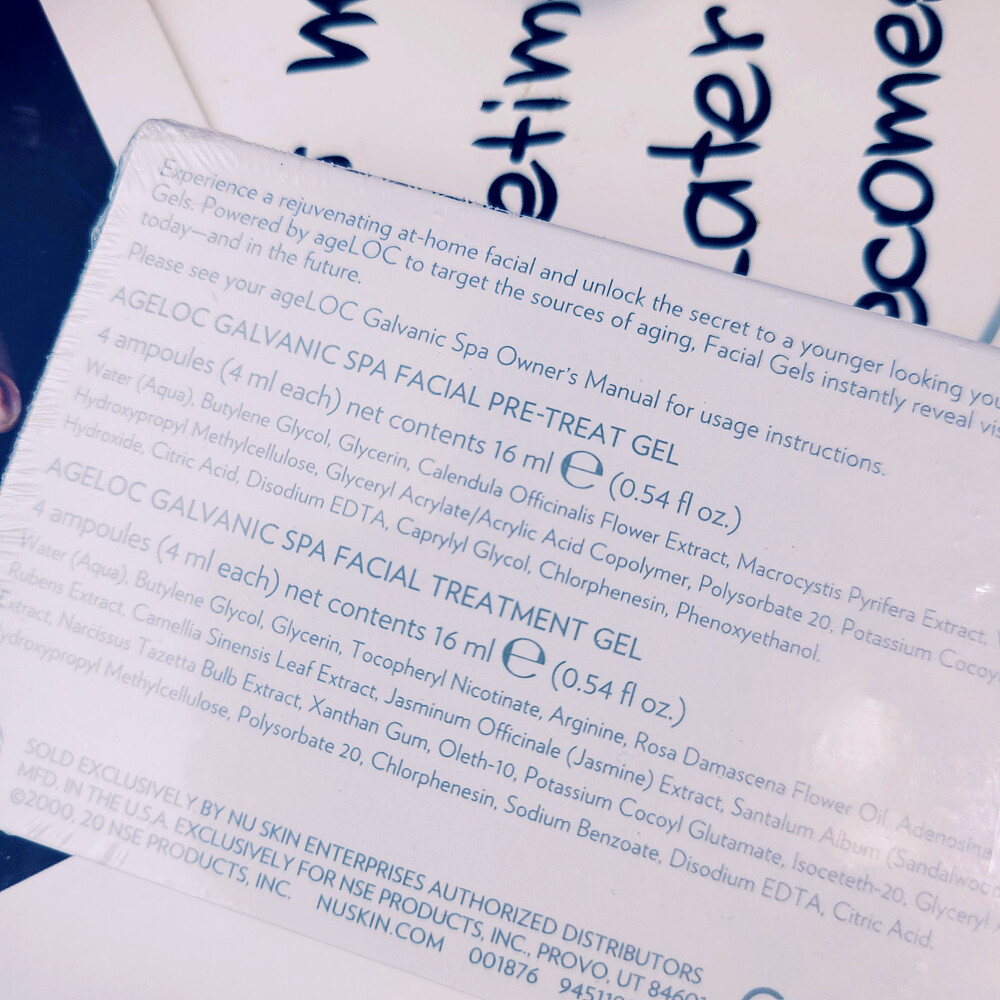 etim
ater
ecomes
Experience a rejuvenating at-home facial and unlock the secret to a younger looking you
Gels. Powered by ageLOC to target the sources of aging, Facial Gels instantly reveal vis
today—and in the future.
Please see your ageLOC Galvanic Spa Owner's Manual for usage instructions.
AGELOC GALVANIC SPA FACIAL PRE-TREAT GEL
4 ampoules (4 ml each) net contents 16 ml ℮ (0.54 fl oz.)
Water (Aqua), Butylene Glycol, Glycerin, Calendula Officinalis Flower Extract, Macrocystis Pyrifera Extract,
Hydroxypropyl Methylcellulose, Glyceryl Acrylate/Acrylic Acid Copolymer, Polysorbate 20, Potassium Cocoyl
Hydroxide, Citric Acid, Disodium EDTA, Caprylyl Glycol, Chlorphenesin, Phenoxyethanol.
AGELOC GALVANIC SPA FACIAL TREATMENT GEL
4 ampoules (4 ml each) net contents 16 ml ℮ (0.54 fl oz.)
Water (Aqua), Butylene Glycol, Glycerin, Tocopheryl Nicotinate, Arginine, Rosa Damascena Flower Oil, Adenosine
Rubens Extract, Camellia Sinensis Leaf Extract, Jasminum Officinale (Jasmine) Extract, Santalum Album (Sandalwood
Extract, Narcissus Tazetta Bulb Extract, Xanthan Gum, Oleth-10, Potassium Cocoyl Glutamate, Isoceteth-20, Glyceryl
Hydroxypropyl Methylcellulose, Polysorbate 20, Chlorphenesin, Sodium Benzoate, Disodium EDTA, Citric Acid.
SOLD EXCLUSIVELY BY NU SKIN ENTERPRISES AUTHORIZED DISTRIBUTORS
MFD. IN THE U.S.A. EXCLUSIVELY FOR NSE PRODUCTS, INC., PROVO, UT 84601
©2000, 20 NSE PRODUCTS, INC. NUSKIN.COM 001876 945119